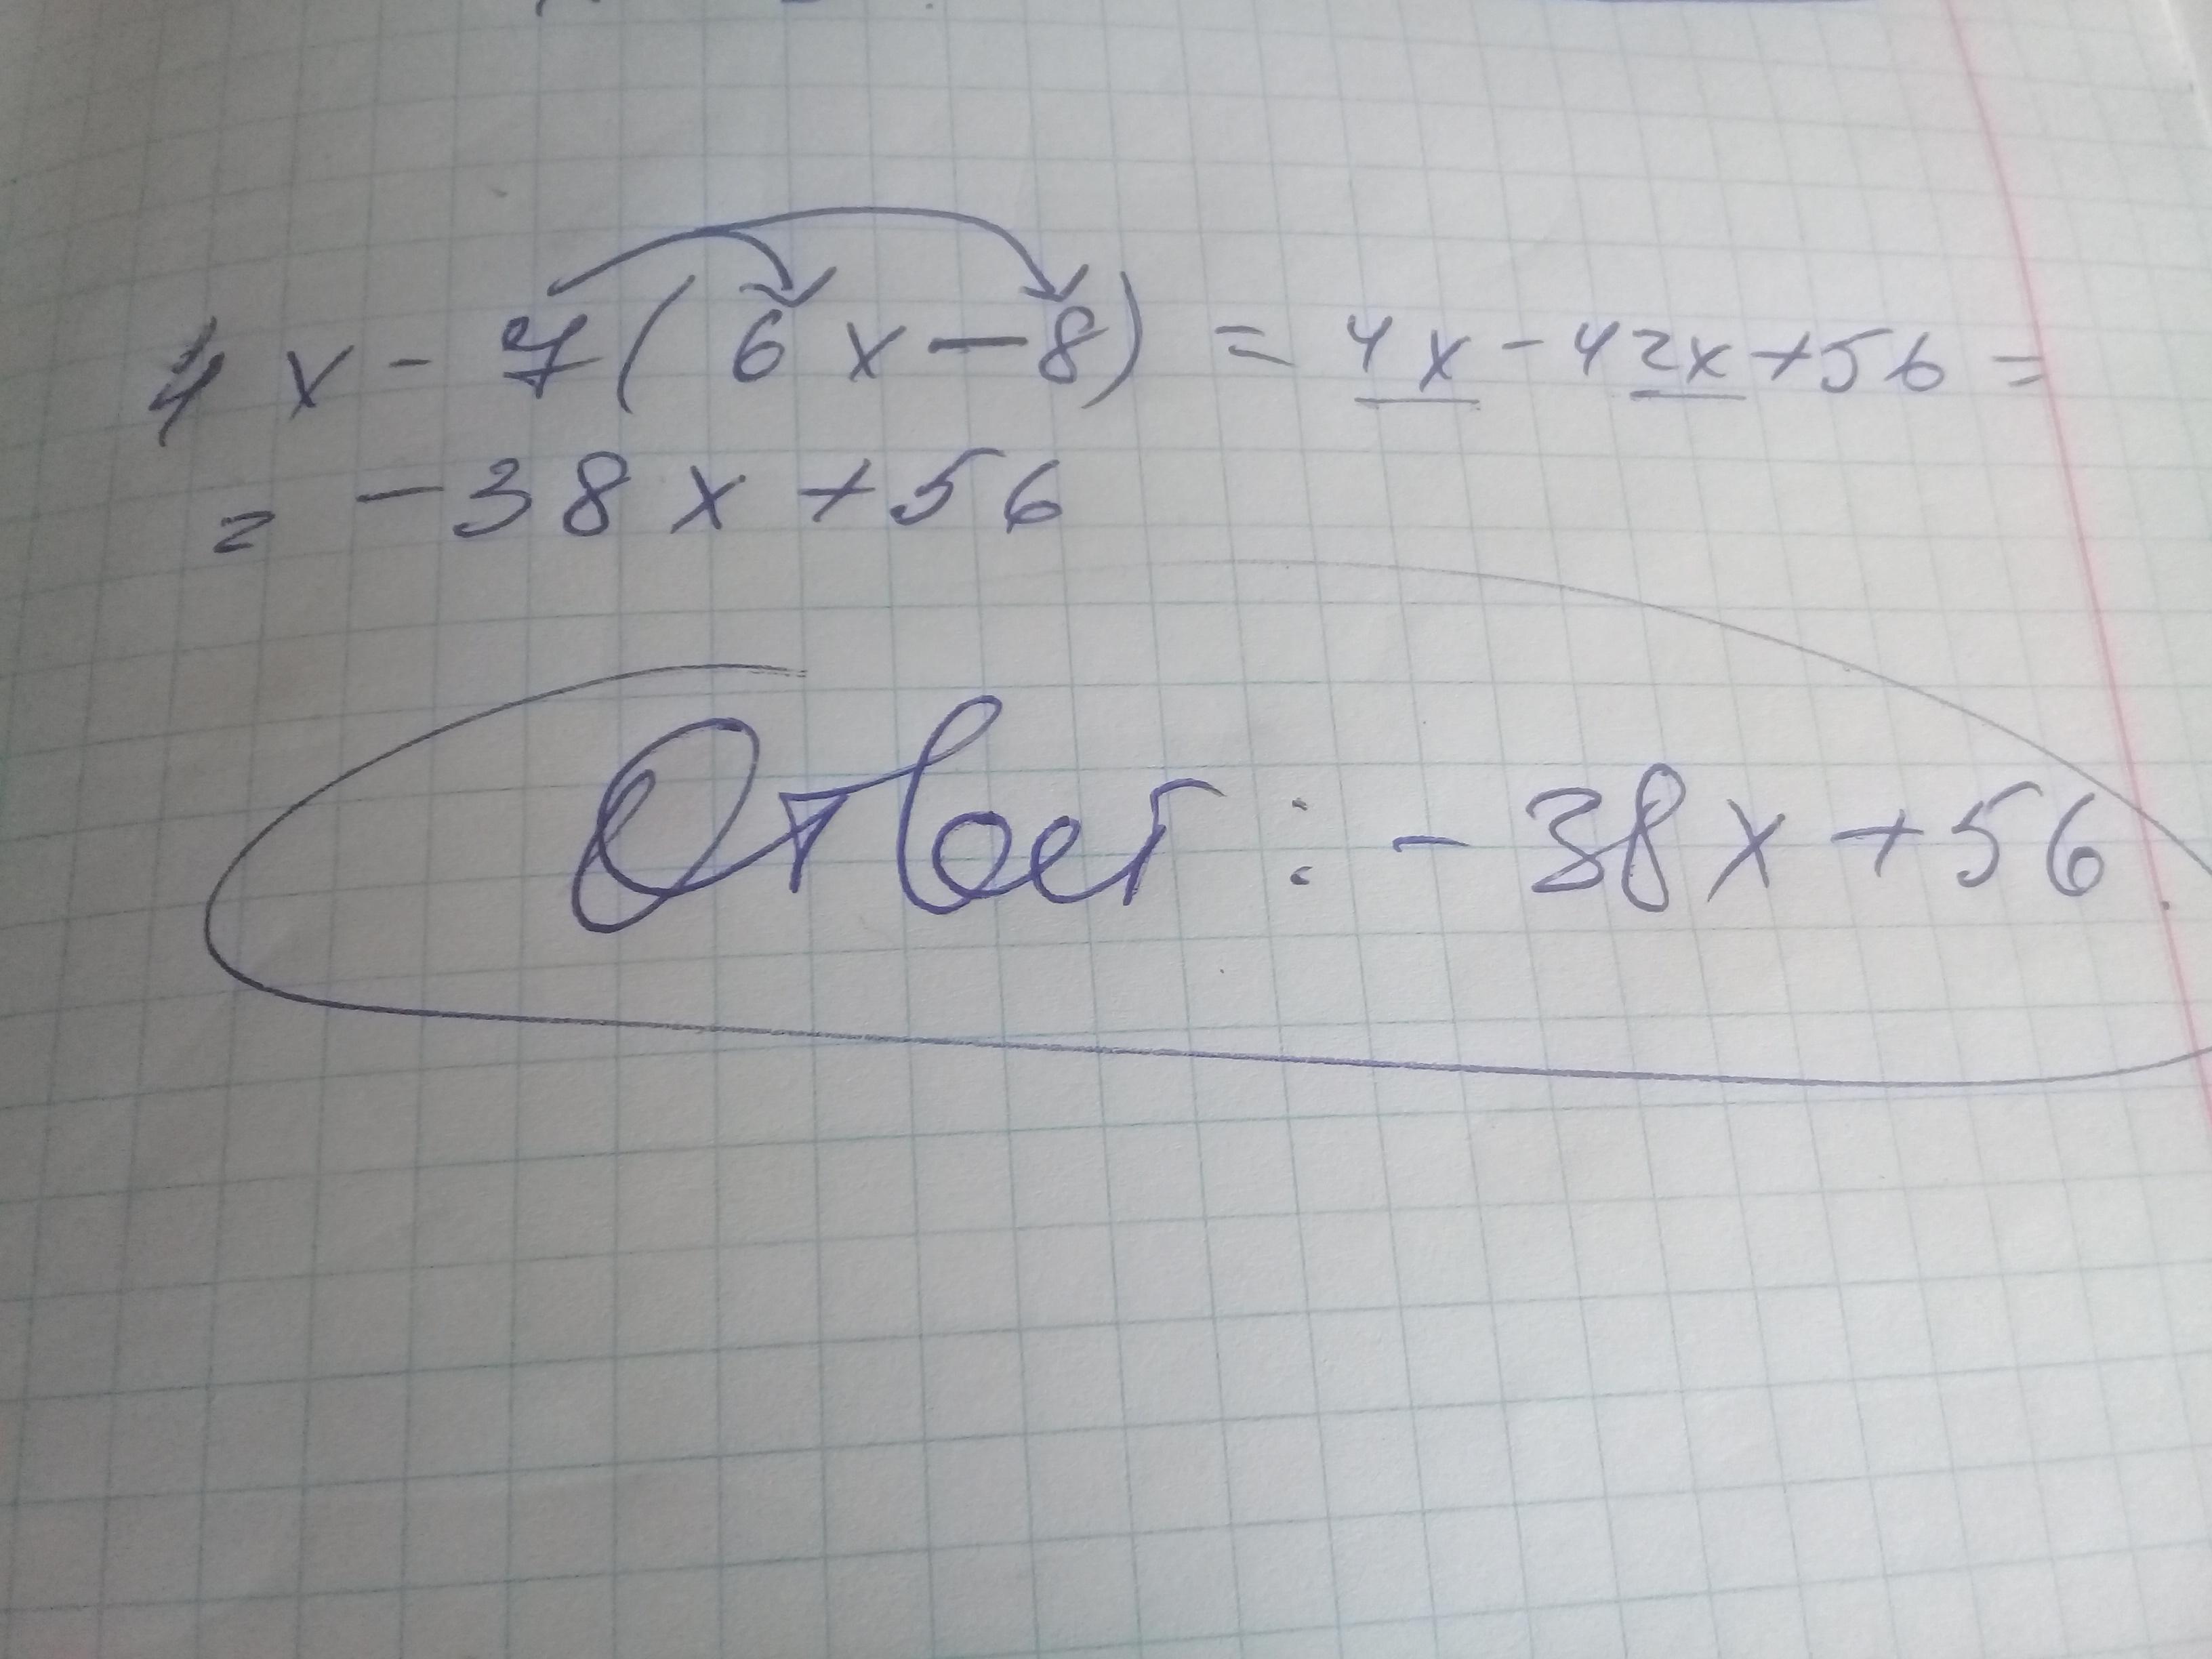 4x - 7(6x - 8) = 4x - 42x + 56 =
= - 38x + 56
Ответ: - 38x + 56